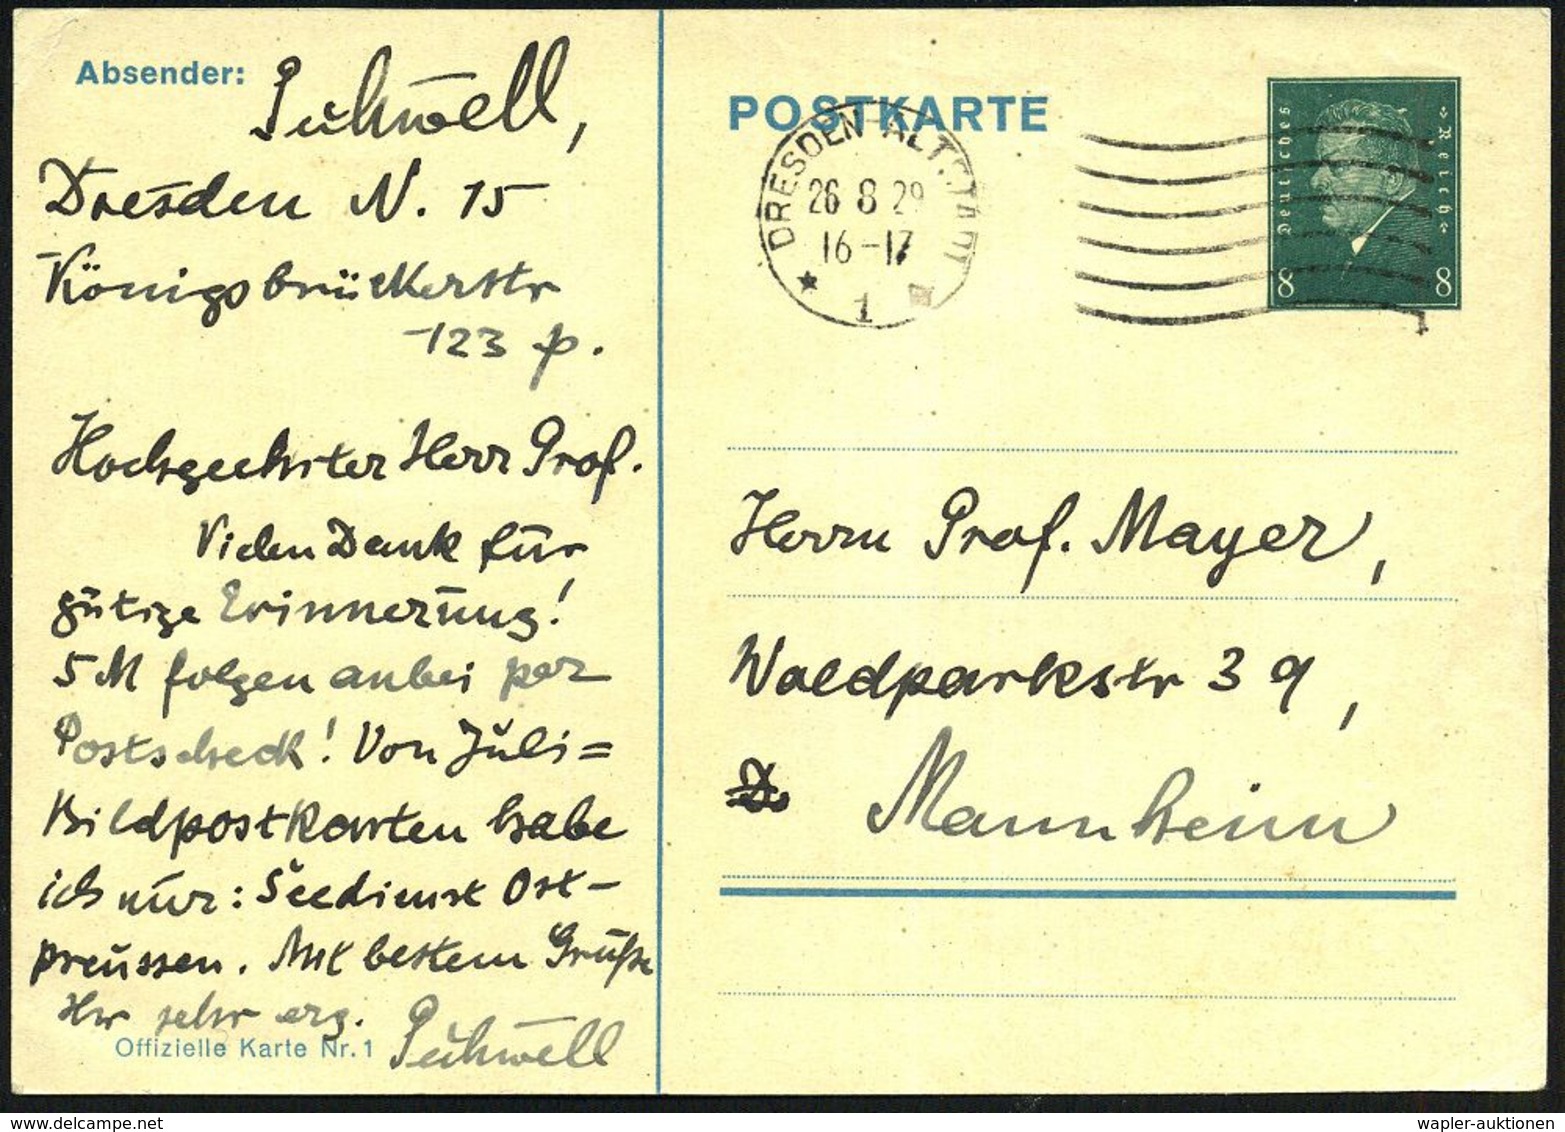 Absender:
Dresden N. 15
Königsbrückerstr
123 p.
Hochgeehrter Herr Prof.
Vielen Dank für
gütige Erinnerung!
5 M folgen anbei per
Postscheck! Von Juli=
Bildpostkarten habe
ich nur: Seedienst Ost-
preussen. Mit bestem Gruße
Ihr sehr erg.
Offizielle Karte Nr. 1
POSTKARTE
DRESDEN-ALTSTADT
26 8 29
16-17
1
Deutsches Reich
8 8
Herrn Prof. Mayer,
Waldparkstr 39,
Mannheim
wapler-auktionen